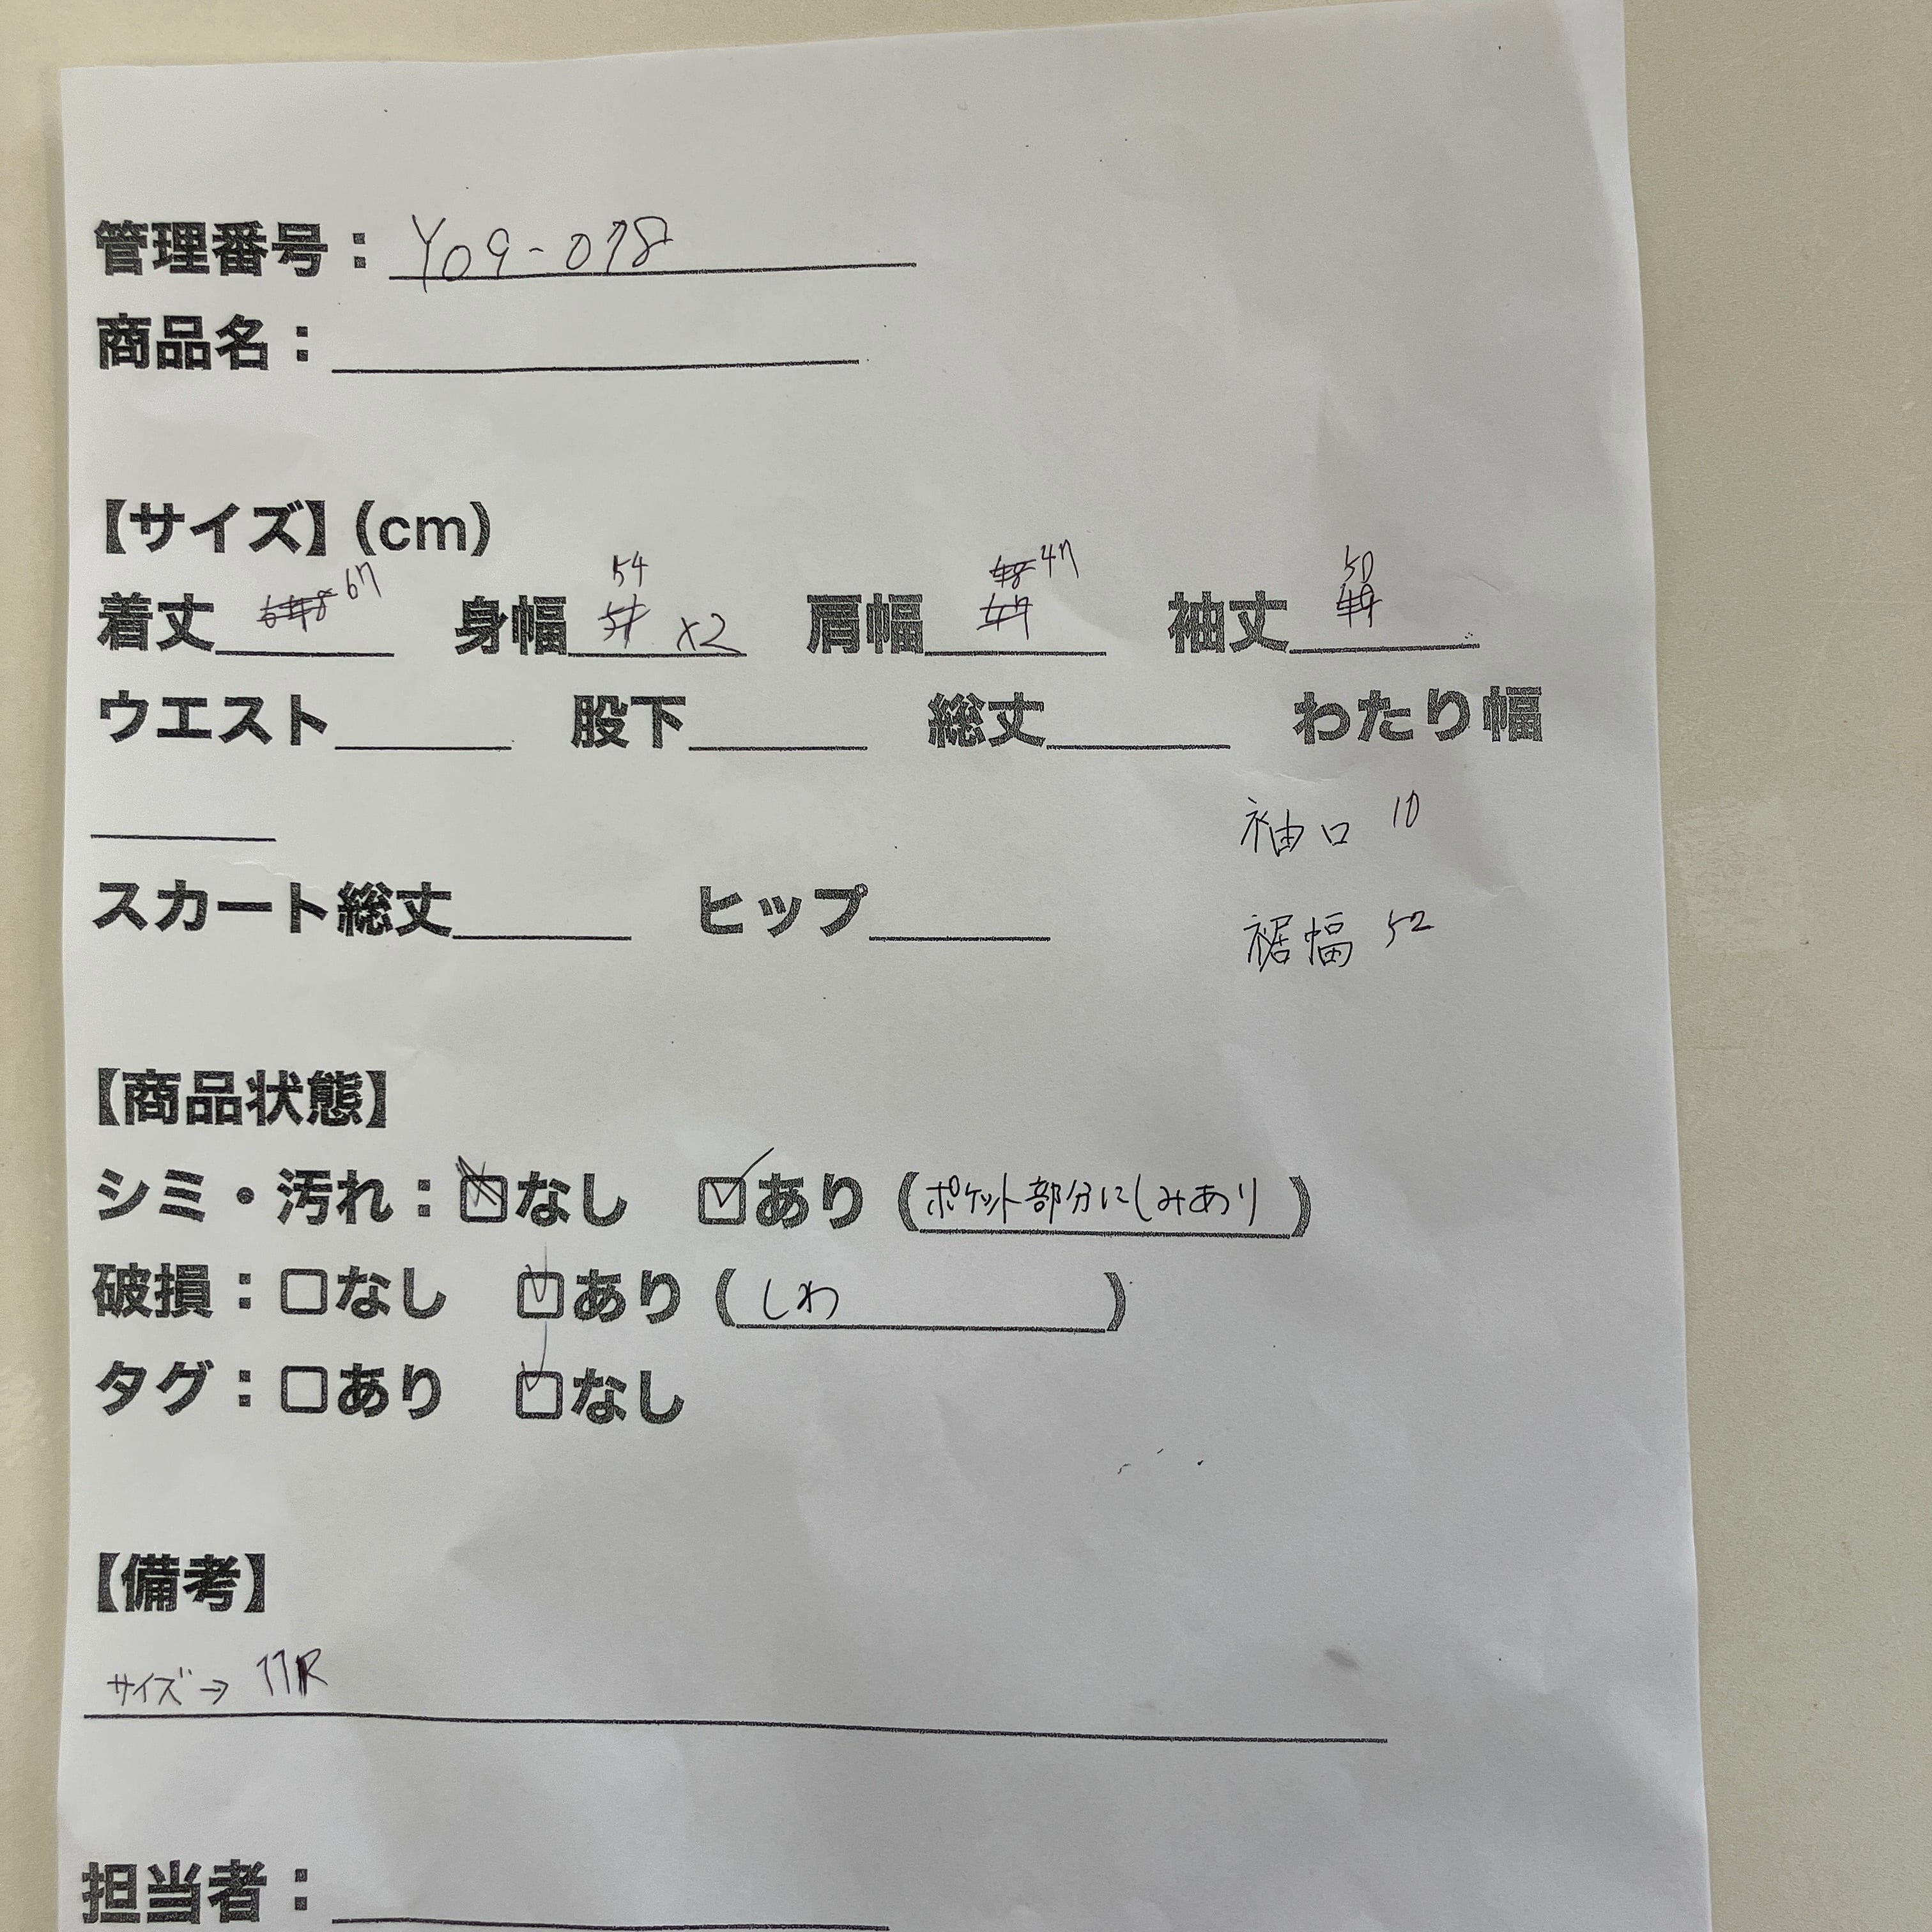 管理番号：Y09-078
商品名：
【サイズ】(cm)
着丈 67 身幅 54 ×2 肩幅 47 袖丈 50
ウエスト 股下 総丈 わたり幅
袖口 10
スカート総丈 ヒップ
裾幅 52
【商品状態】
シミ・汚れ：☒なし ☑あり（ポケット部分にしみあり）
破損：☐なし ☑あり（しわ）
タグ：☐あり ☑なし
【備考】
サイズ→ 11R
担当者：